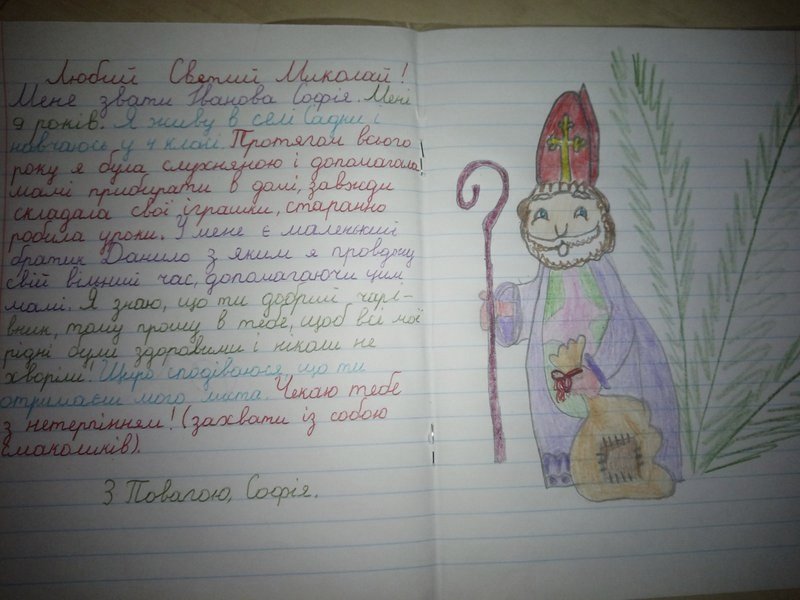 Любий Святий Миколай!
Мене звати Іванова Софія. Мені
9 років. Я живу в селі Садки і
навчаюсь у 4 класі Протягом всього
року я була слухняною і допомагала
мамі прибирати в домі, завжди
складала свої іграшки, старанно
робила уроки. У мене є маленький
братик Данило з яким я проводжу
свій вільний час, допомагаючи цим
мамі. Я знаю, що ти добрий чарі-
вник, тому прошу в тебе, щоб всі мої
рідні були здоровими і ніколи не
хворіли. Щиро сподіваюся, що ти
отримаєш мого листа. Чекаю тебе
з нетерпінням! (захвати із собою
смаколиків).
З Повагою, Софія.